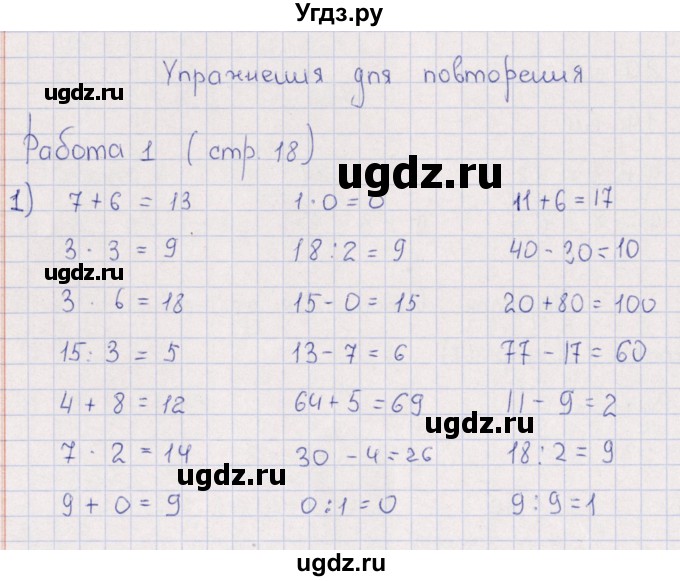 Угдз.ру
Упражнения для повторения
ugdz.ru
Работа 1 (стр. 18)
ugdz.ru
1) 7+6 = 13 1·0=0 11+6=17
3 · 3 = 9 18:2=9 40-30=10
ugdz.ru
3 · 6=18 15-0=15 20+80=100
15:3=5 13-7=6 77-17=60
4+8=12 64+5=69 11-9=2
ugdz.ru
7·2=14 30-4=26 18:2=9
ugdz.ru
9+0=9 0:1=0 9:9=1
ugdz.ru